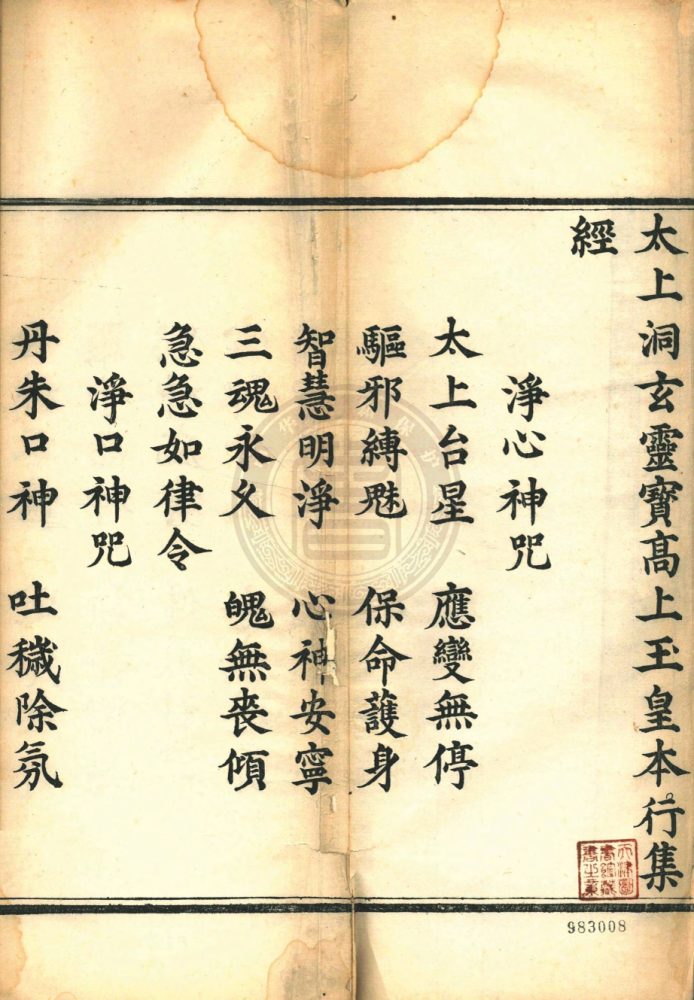 太上洞玄靈寶高上玉皇本行集
經
淨心神咒
太上台星 應變無停
驅邪縛魅 保命護身
智慧明淨 心神安寧
三魂永久 魄無喪傾
急急如律令
淨口神咒
丹朱口神 吐穢除氛
天津圖
書館藏
書之章
983008